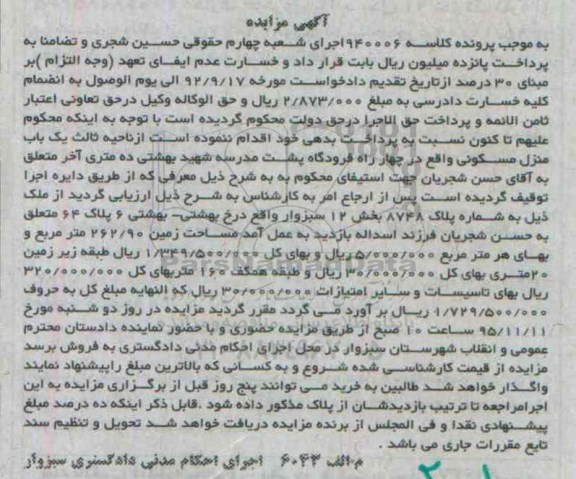 آگهی مزایده
به موجب پرونده کلاسه ۹۴۰۰۰۶ اجرای شعبه چهارم حقوقی حسین شجری و تضامنا به
پرداخت پانزده میلیون ریال بابت قرار داد و خسارت عدم ایفای تعهد (وجه التزام )بر
مبنای ۳۰ درصد ازتاریخ تقدیم دادخواست مورخه ۹۲/۹/۱۷ الی یوم الوصول به انضمام
کلیه خسارت دادرسی به مبلغ ۲/۸۷۳/۰۰۰ ریال و حق الوکاله وکیل درحق تعاونی اعتبار
ثامن الائمه و پرداخت حق الاجرا درحق دولت محکوم گردیده است با توجه به اینکه محکوم
علیهم تا کنون نسبت به پرداخت بدهی خود اقدام ننموده است ازناحیه ثالث یک باب
منزل مسکونی واقع در چهار راه فرودگاه پشت مدرسه شهید بهشتی ده متری آخر متعلق
به آقای حسن شجریان جهت استیفای محکوم به به شرح ذیل معرفی که از طریق دایره اجرا
توقیف گردیده است پس از ارجاع امر به کارشناس به شرح ذیل ارزیابی گردید از ملک
ذیل به شماره پلاک ۸۷۴۸ بخش ۱۲ سبزوار واقع درخ بهشتی– بهشتی ۶ پلاک ۶۴ متعلق
به حسن شجریان فرزند اسداله بازدید به عمل آمد مساحت زمین ۲۶۲/۹۰ متر مربع و
بهای هر متر مربع ۵/۰۰۰/۰۰۰ ریال و بهای کل ۱/۳۴۹/۵۰۰/۰۰۰ ریال طبقه زیر زمین
۲۰متری بهای کل ۳۰/۰۰۰/۰۰۰ ریال و طبقه همکف ۱۶۰ متربهای کل ۳۲۰/۰۰۰/۰۰۰
ریال بهای تاسیسات و سایر امتیازات ۳۰/۰۰۰/۰۰۰ ریال که النهایه مبلغ کل به حروف
۱/۷۲۹/۵۰۰/۰۰۰ ریال بر آورد می گردد مقرر گردید مزایده در روز دو شنبه مورخ
۹۵/۱۱/۱۱ ساعت ۱۰ صبح از طریق مزایده حضوری و با حضور نماینده دادستان محترم
عمومی و انقلاب شهرستان سبزوار در محل اجرای احکام مدنی دادگستری به فروش برسد
مزایده از قیمت کارشناسی شده شروع و به کسانی که بالاترین مبلغ راپیشنهاد نمایند
واگذار خواهد شد طالبین به خرید می توانند پنج روز قبل از برگزاری مزایده به این
اجرامراجعه تا ترتیب بازدیدشان از پلاک مذکور داده شود .قابل ذکر اینکه ده درصد مبلغ
پیشنهادی نقدا و فی المجلس از برنده مزایده دریافت خواهد شد تحویل و تنظیم سند
تابع مقررات جاری می باشد .
م.الف ۶۰۴۳ اجرای احکام مدنی دادگستری سبزوار